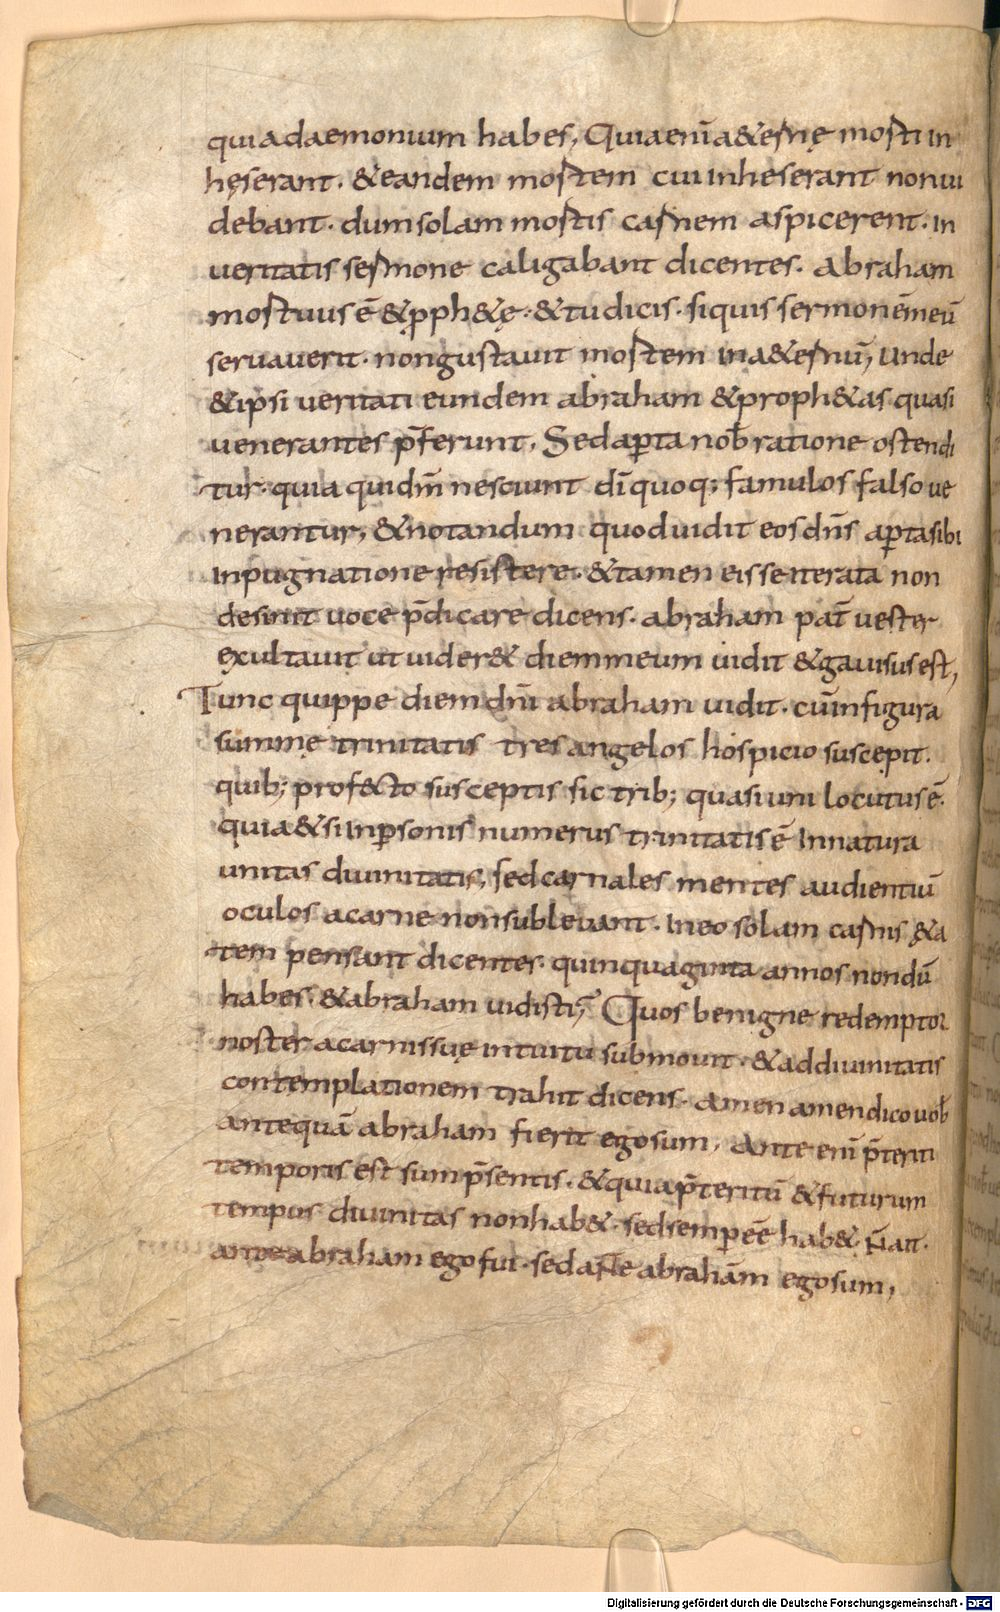 quia daemonium habes, Quia enī a&ernę morti in
hęserant. &eandem mortem cui inheserant non vi
debant. dum solam mortis carnem aspicerent. in
veritatis sermone caligabant dicentes. Abraham
mortuus ē &pph&ę. &tu dicis. siquis sermonē meū
servaverit. non gustavit mortem in a&ernū, Unde
&ipsi veritati eundem abraham &proph&as quasi
venerantes p̄ferunt, Sed aꝑta nob̄ ratione ostendi
tur. quia qui dm̄ nesciunt dī quoq; famulos falso ve
nerantur, &notandum quod vidit eos dn̄s aꝑta sibi
inpugnatione resistere. &tamen eis se iterata non
desinit voce p̄dicare dicens. abraham pat̄ vester
exultavit ut vider& diem meum vidit &gavisus est,
Tunc quippe diem dn̄i abraham vidit. cū in figura
summę trinitatis tres angelos hospicio suscepit.
quib; prof&cto susceptis sic trib; quasi uni locutus ē.
quia &si in ꝑsonis numerus trinitatis ē In natura
unitas divinitatis, sed carnales mentes audientiū
oculos a carne non sublevant. in eo solam carnis &a
tem pensant dicentes. quinquaginta annos nondū
habes. &abraham vidisti? Quos benigne redemptor
noster a carnis svę intuitu submovit. &ad divinitatis
contemplationem trahit dicens. Amen amen dico vob̄
antequā abraham fierit ego sum, Ante enī p̄teriti
temporis est sum p̄sentis. &quia p̄teritū &futurum
tempus divinitas non hab&. sed semper eē hab&. n̄ ait.
ante abraham ego fui. sed ante abrahām ego sum,
Digitalisierung gefördert durch die Deutsche Forschungsgemeinschaft - DFG